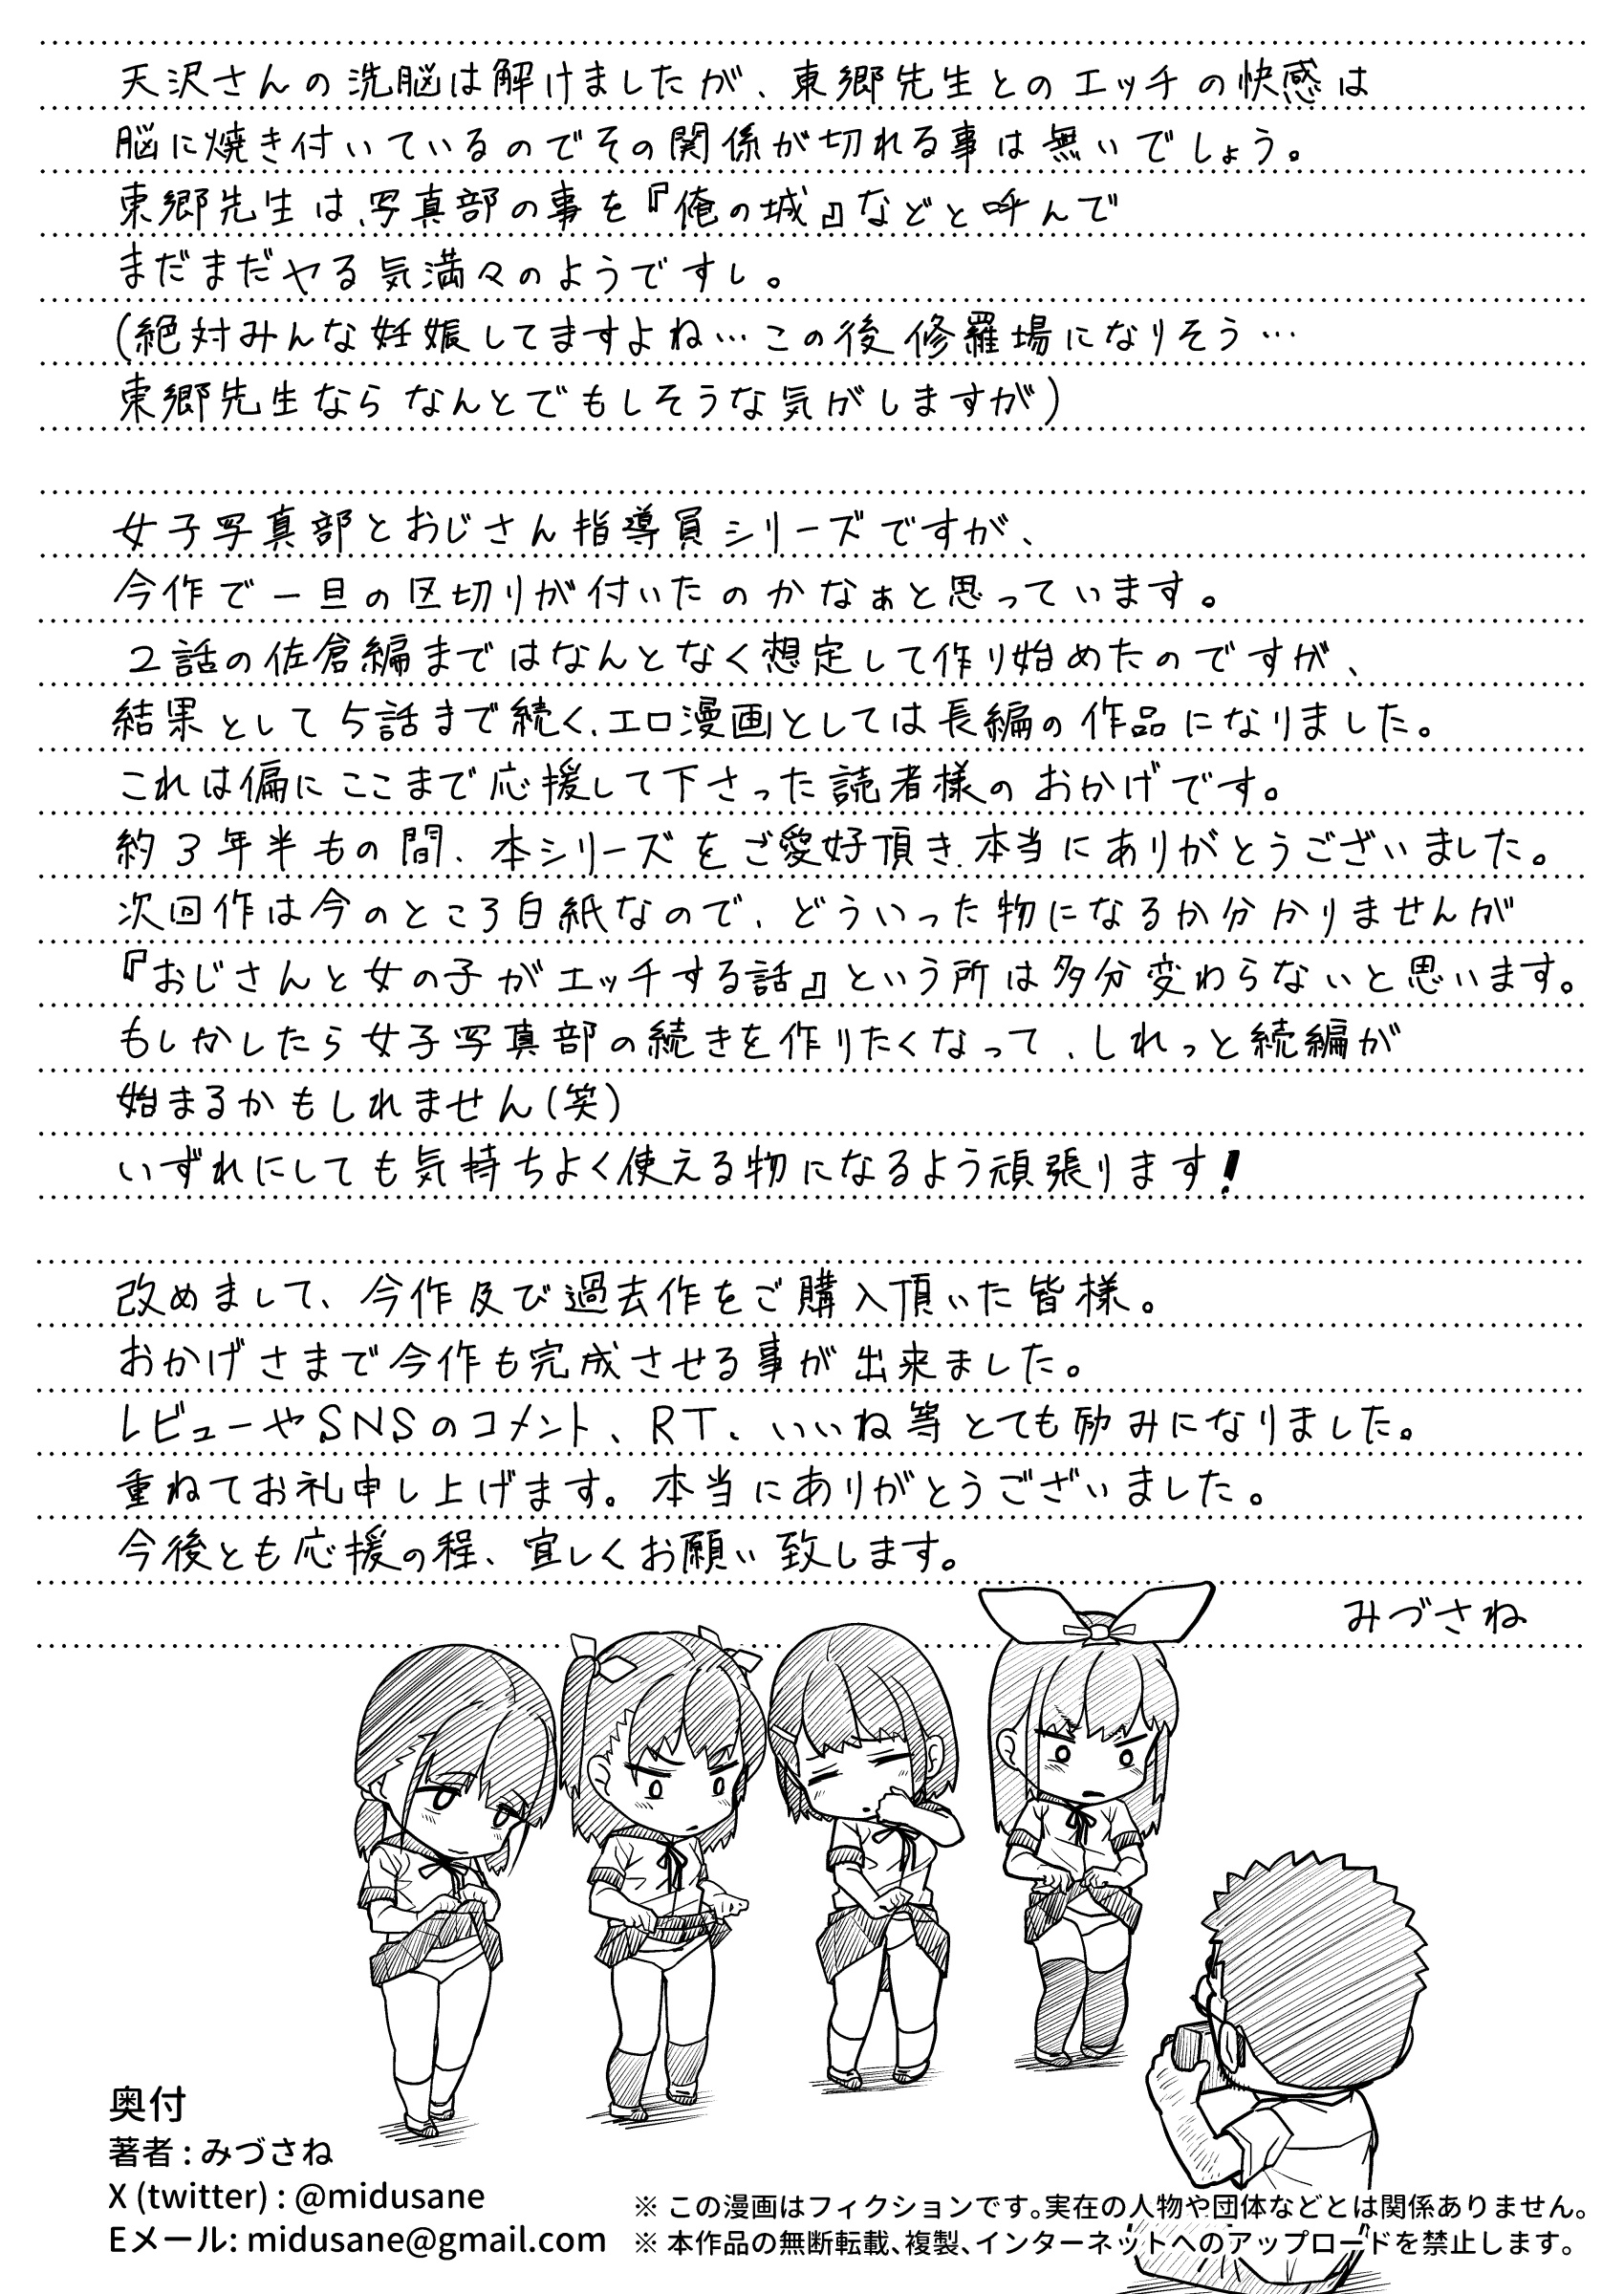 天沢さんの洗脳は解けましたが、東郷先生とのエッチの快感は
脳に焼き付いているのでその関係が切れる事は無いでしょう。
東郷先生は、写真部の事を『俺の城』などと呼んで
まだまだヤる気満々のようですし。
(絶対みんな妊娠してますよね…この後修羅場になりそう…
東郷先生ならなんとでもしそうな気がしますが)
女子写真部とおじさん指導員シリーズですが、
今作で一旦の区切りが付いたのかなぁと思っています。
2話の佐倉編まではなんとなく想定して作り始めたのですが、
結果として5話まで続く、エロ漫画としては長編の作品になりました。
これは偏にここまで応援して下さった読者様のおかげです。
約3年半もの間、本シリーズをご愛好頂き、本当にありがとうございました。
次回作は今のところ白紙なので、どういった物になるか分かりませんが
『おじさんと女の子がエッチする話』という所は多分変わらないと思います。
もしかしたら女子写真部の続きを作りたくなって、しれっと続編が
始まるかもしれません(笑)
いずれにしても気持ちよく使える物になるよう頑張ります!
改めまして、今作及び過去作をご購入頂いた皆様。
おかげさまで今作も完成させる事が出来ました。
レビューやSNSのコメント、RT、いいね等とても励みになりました。
重ねてお礼申し上げます。本当にありがとうございました。
今後とも応援の程、宜しくお願い致します。
みづさね
奥付
著者 : みづさね
X (twitter) : @midusane
Eメール: midusane@gmail.com
※ この漫画はフィクションです。実在の人物や団体などとは関係ありません。
※ 本作品の無断転載、複製、インターネットへのアップロードを禁止します。